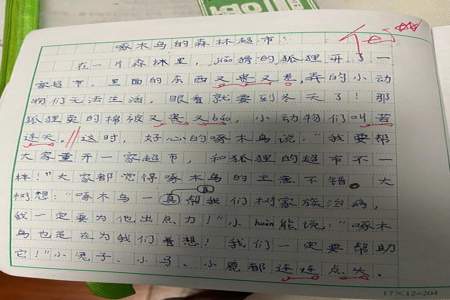 啄木鸟的森林超市
在一片森林里，jiǎo猾的狐狸开了一
家超市，里面的东西又贵又差，弄的小动
物们无法生活，眼看就要到冬天了！那
狐狸卖的棉被又贵又báo，小动物们叫苦
连天。这时，好心的啄木鸟说："我要帮
大家重开一家超市，和狐狸的超市不一
样！"大家都觉得啄木鸟的主意不错。大
树想："啄木鸟一直帮我们树家族治病，
我一定要为他出点力！"小huān熊说："啄木
鸟也是在为我们着想！我们一定要帮助
它！"小兔子、小马、小鹿都连连点头。